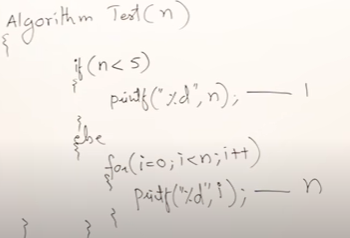 Algorithm Test(n)
{
if(n<5)
{
printf("%d", n); — 1
}
else
{
for(i=0; i<n; i++)
{
printf("%d", i); — n
}
}
}